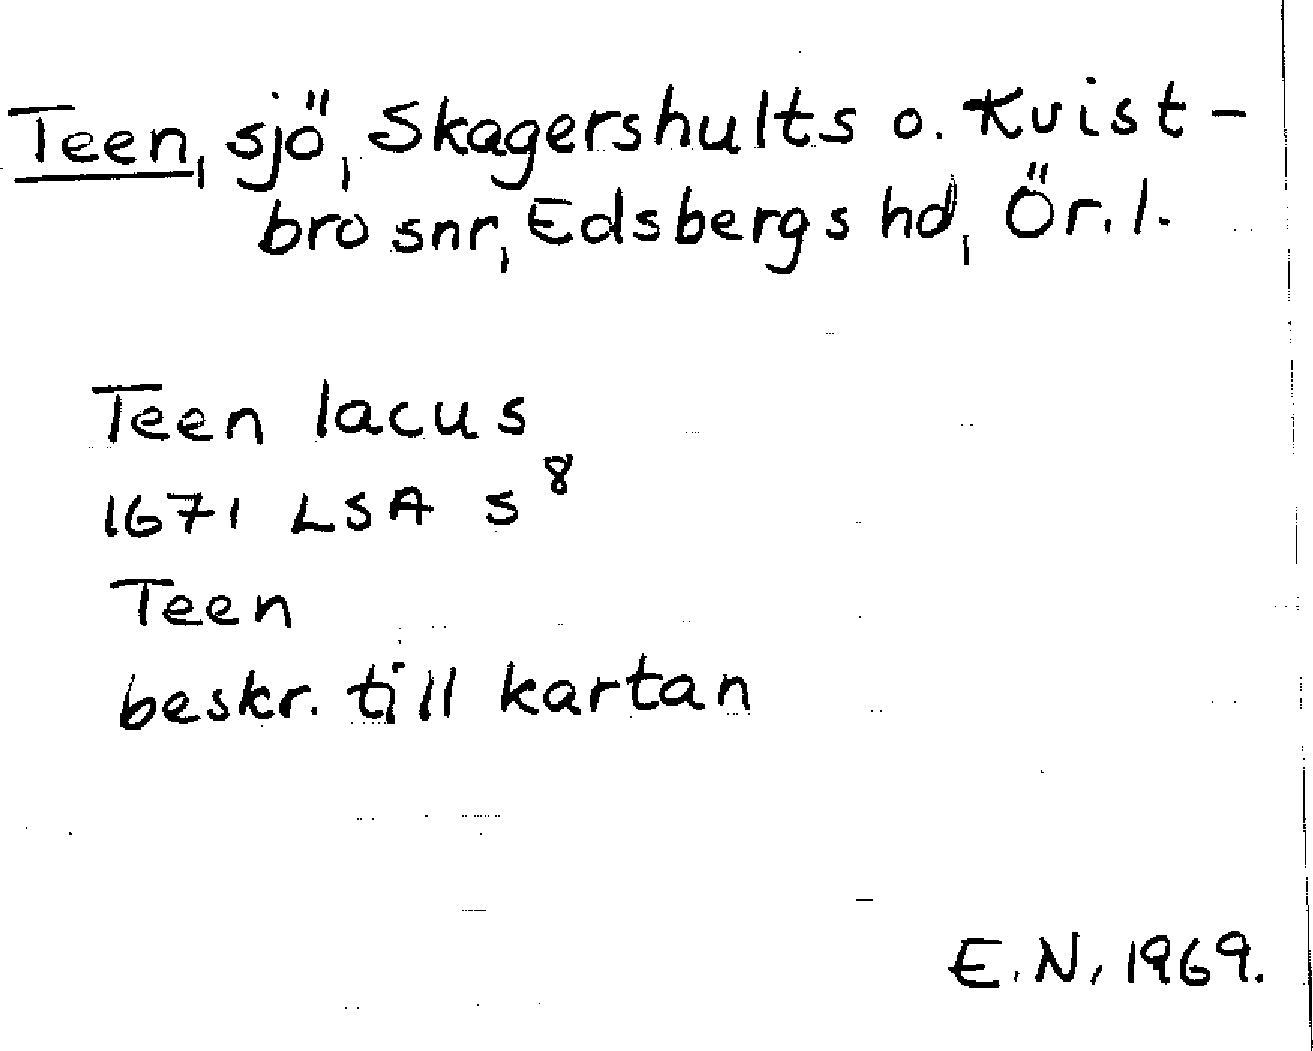 Teen, sjö, Skagershults o. Kvist-
bro snr, Edsbergs hd, Ör. l.
Teen lacus
1671 LSA s 8
Teen
beskr. till kartan
E. N, 1969.